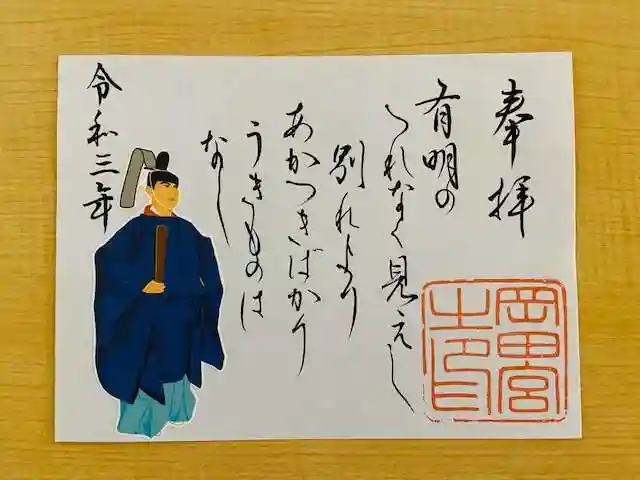 奉拝
有明の
つれなく見えし
別れより
あかつきばかり
うきものは
なし
令和三年
岡田宮
之印